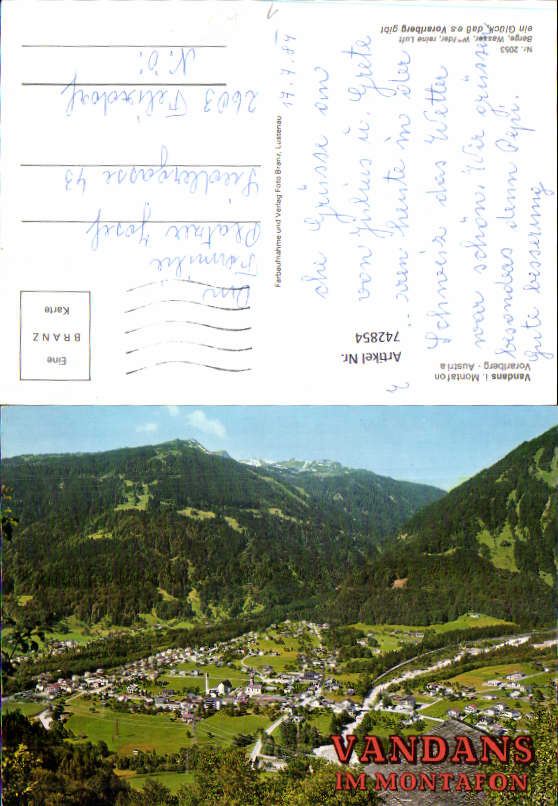 Vandans i. Montafon
Vorarlberg - Austria
Artikel Nr.
742854
Eine
BRANZ
Karte
17.7.84
die Grüsse am
von Julius u. Grete
heute in der
Schweiz das Wetter
war schön. Wir grüssen
besonders denn Pepi.
Gute besserung
An
Familie
Josef
Siedlergasse 43
2603 Felixdorf
N.Ö.
Farbaufnahme und Verlag Foto Branz, Lustenau
Nr. 2053
Berge, Wasser, Wälder, reine Luft
ein Glück, daß es Vorarlberg gibt
VANDANS
IM MONTAFON